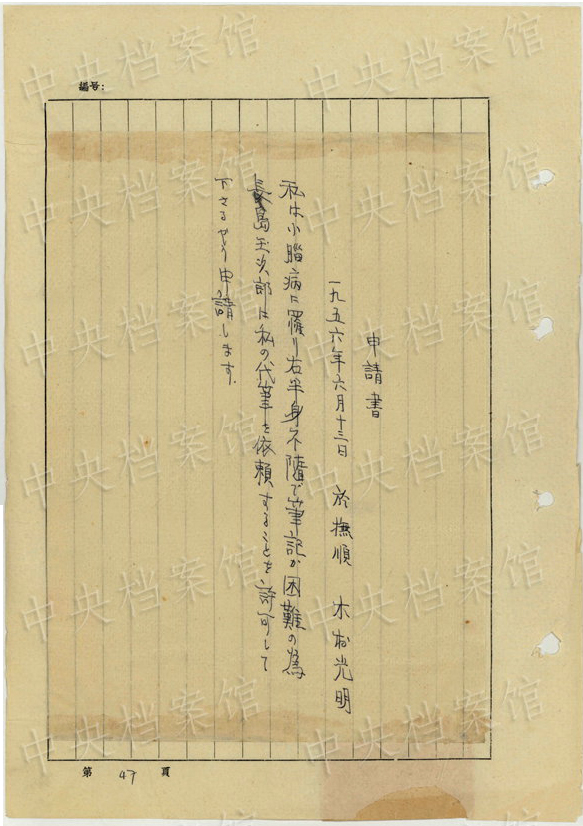 編号:
申請書
一九五六年六月十三日 於撫順 木村光明
私は小脳病に罹り右半身不随で筆記が困難の為
長島玉次郎に私の代筆を依頼することを許可して
下さるやう申請します.
第 47 頁
中央档案馆